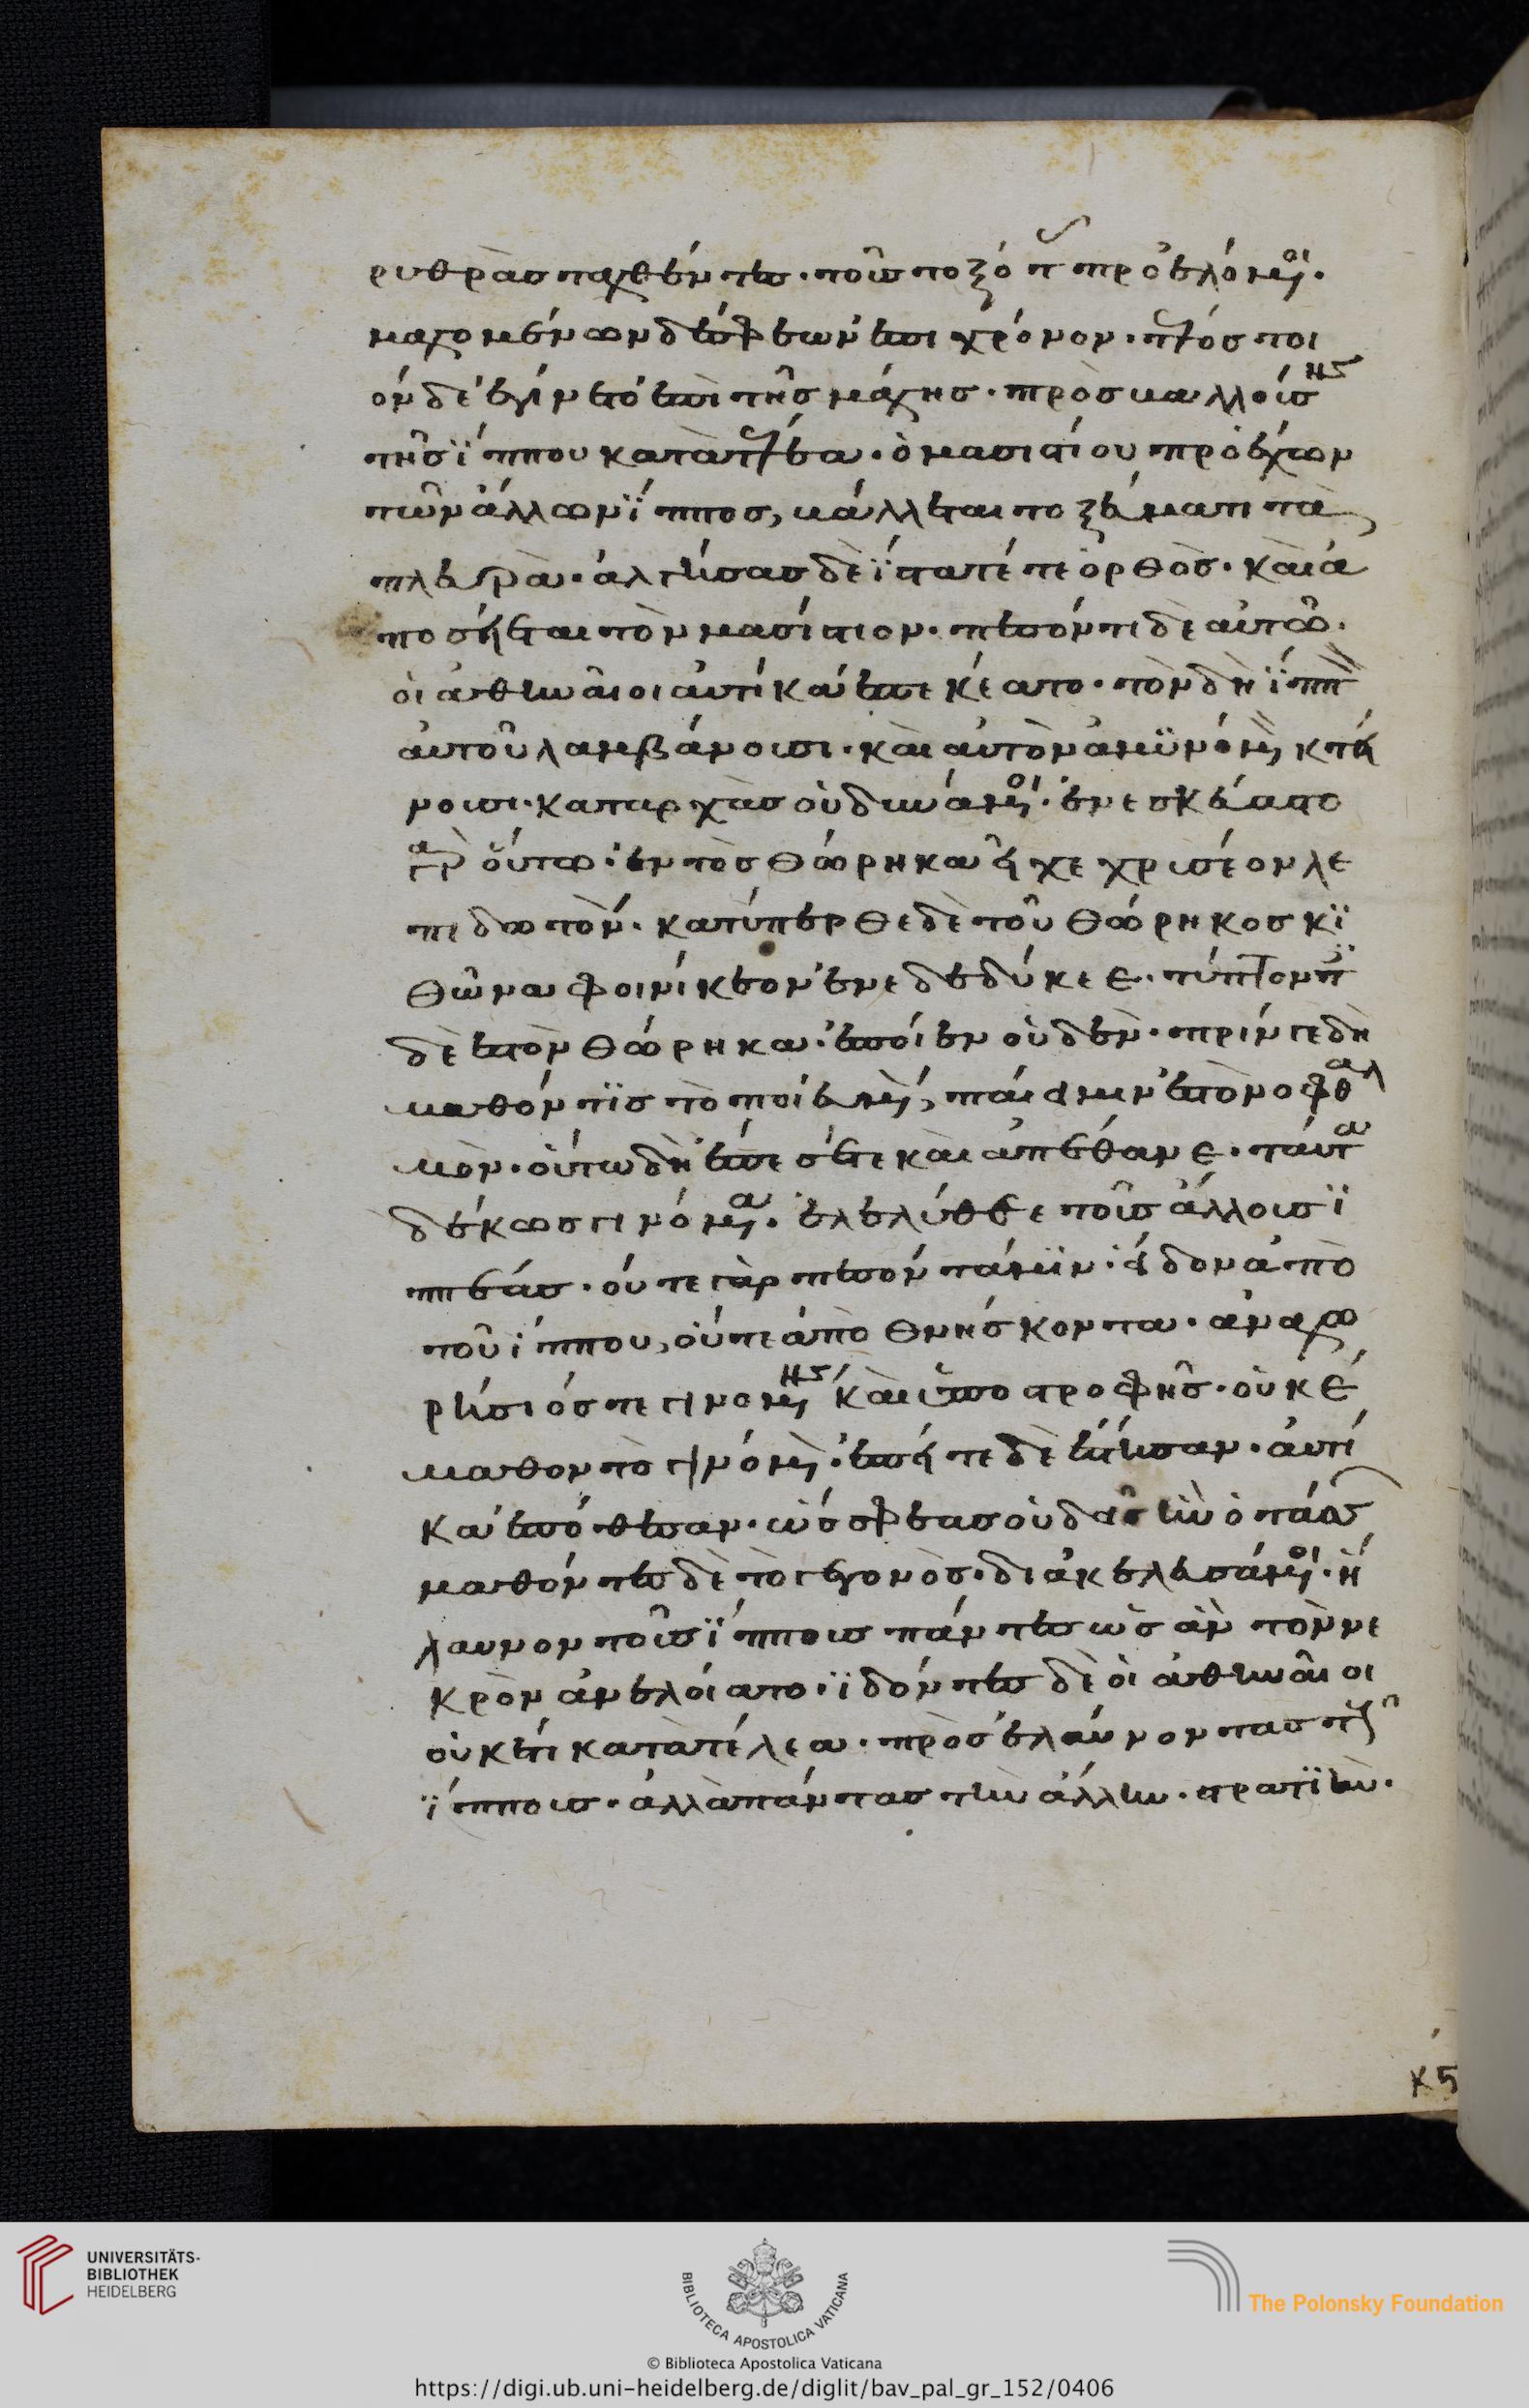 ρυθρὰσ ταχθέντεσ. τοὺσ τοξότασ προελόμενοι.
μαχομένων δέ σφεων ἐπι χρόνον. τέλοσ τοι
όνδε ἐγίνετο ἐπὶ τῆσ μάχησ. προσβαλλούσησ
τῆσ ἵππου κατὰ τέλεα. ὁ μασιστίου προέχων
τῶν ἄλλων ἵπποσ, βάλλεται τοξεύματι τὰ
πλευρὰ. ἀλγήσασ δὲ ἵσταταί τε ὀρθὸσ. καὶ ἀ
ποσείεται τὸν μασίστιον. πεσόντι δὲ αὐτῶ.
οἱ ἀθηναῖοι αὐτίκα ἐπεκέατο. τὸν δὴ ἵππον
αὐτοῦ λαμβάνουσι. καὶ αὐτὸν ἀμϋνόμενον κτεί
νουσι. καταρχὰσ οὐ δυνάμενοι. ἐνεσκεύαστο
γὰρ οὕτω. ἐντὸσ θώρηκα εἶχε χρύσεον λε
πιδωτόν. κατύπερθε δὲ τοῦ θώρηκοσ κϊ
θῶνα φοινίκεον ἐνεδεδύκεε. τύπτοντεσ
δὲ ἐσ τὸν θώρηκα. ἐποίευν οὐδὲν. πρίν γε δὴ
μαθόν τϊσ τὸ ποιεύμενον, παίει μιν ἐσ τὸν οφθαλ
μὸν. οὕτω δὴ ἔπεσέ τε καὶ ἀπέθανε. ταῦτα
δέ κωσ γινόμενα. ἐλελήθεε τοὺσ ἄλλουσ ϊπ
πέασ. οὔτε γὰρ πεσόντα μϊν. εἶδον ἀπὸ
τοῦ ἵππου, οὔτε ἀποθνήσκοντα. ἀναχω
ρήσιόσ τε γινομένησ καὶ ὑποστροφῆσ. οὐκ ἔ
μαθον τὸ γινόμενον. ἐπεί τε δὲ ἔστησαν. αὐτί
κα ἐπόθεσαν. ὥσ σφεασ οὐδεὶσ ἦν ὁ τάσσων
μαθόντεσ δὲ τὸ γεγονὸσ. διακελευσάμενοι. ἤ
λαυνον τοὺσ ἵππουσ πάντεσ ὡσ ἂν τὸν νε
κρὸν ἀνελοίατο. ϊδόντεσ δὲ οἱ ἀθηναῖοι
οὐκέτι κατὰ τέλεα. προσελαύνοντασ τοὺσ
ἵππουσ. ἀλλὰ πάντασ τὴν ἄλλην. στρατϊὴν.
κϛ
UNIVERSITÄTS-
BIBLIOTHEK
HEIDELBERG
BIBLIOTECA APOSTOLICA VATICANA
The Polonsky Foundation
© Biblioteca Apostolica Vaticana
https://digi.ub.uni-heidelberg.de/diglit/bav_pal_gr_152/0406